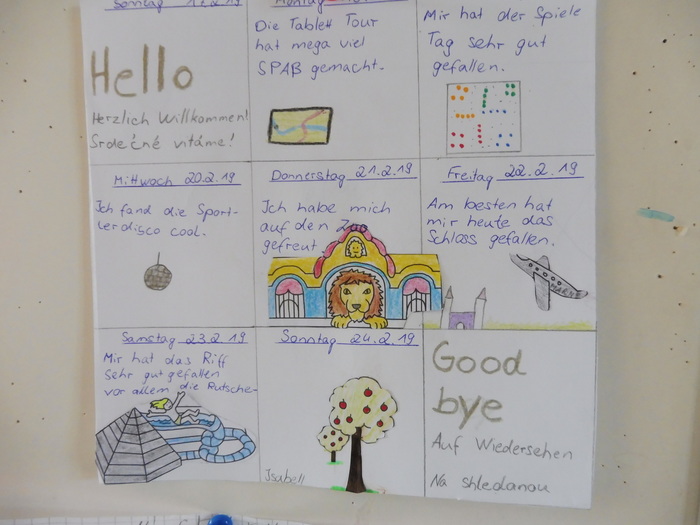 Sonntag 17.2.19
Hello
Herzlich Willkommen!
Srdečné vitáme!
Montag
Die Tablett Tour
hat mega viel
SPAß gemacht.
Mir hat der Spiele
Tag sehr gut
gefallen.
Mittwoch 20.2.19
Ich fand die Sport-
lerdisco cool.
Donnerstag 21.2.19
Ich habe mich
auf den Zoo
gefreut
Freitag 22.2.19
Am besten hat
mir heute das
Schloss gefallen.
Samstag 23.2.19
Mir hat das Riff
Sehr gut gefallen
vor allem die Rutsche.
Sonntag 24.2.19
Isabell
Good
bye
Auf Wiedersehen
Na shledanou